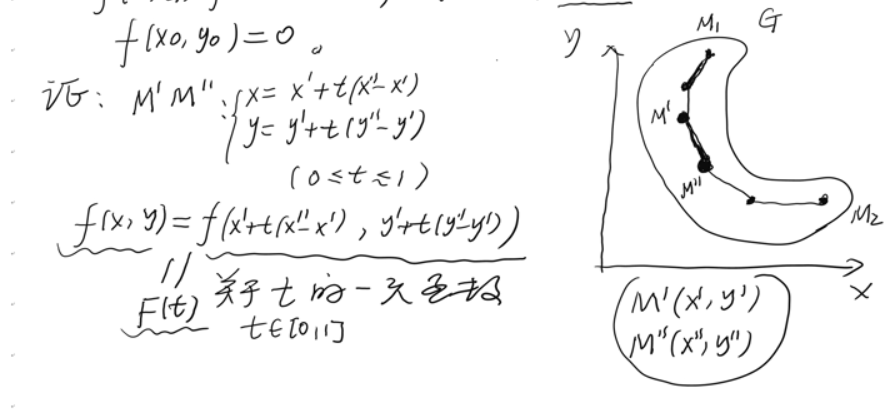 f(x₀, y₀)=0。
证: M'M'': { x= x'+t(x''-x')
y= y'+t(y''-y')
(0≤t≤1)
f(x,y)=f(x'+t(x''-x'), y'+t(y''-y'))
||
F(t) 关于t的一元
t∈[0,1]
y
M₁ G
M'
M''
M₂
x
M'(x',y')
M''(x'',y'')